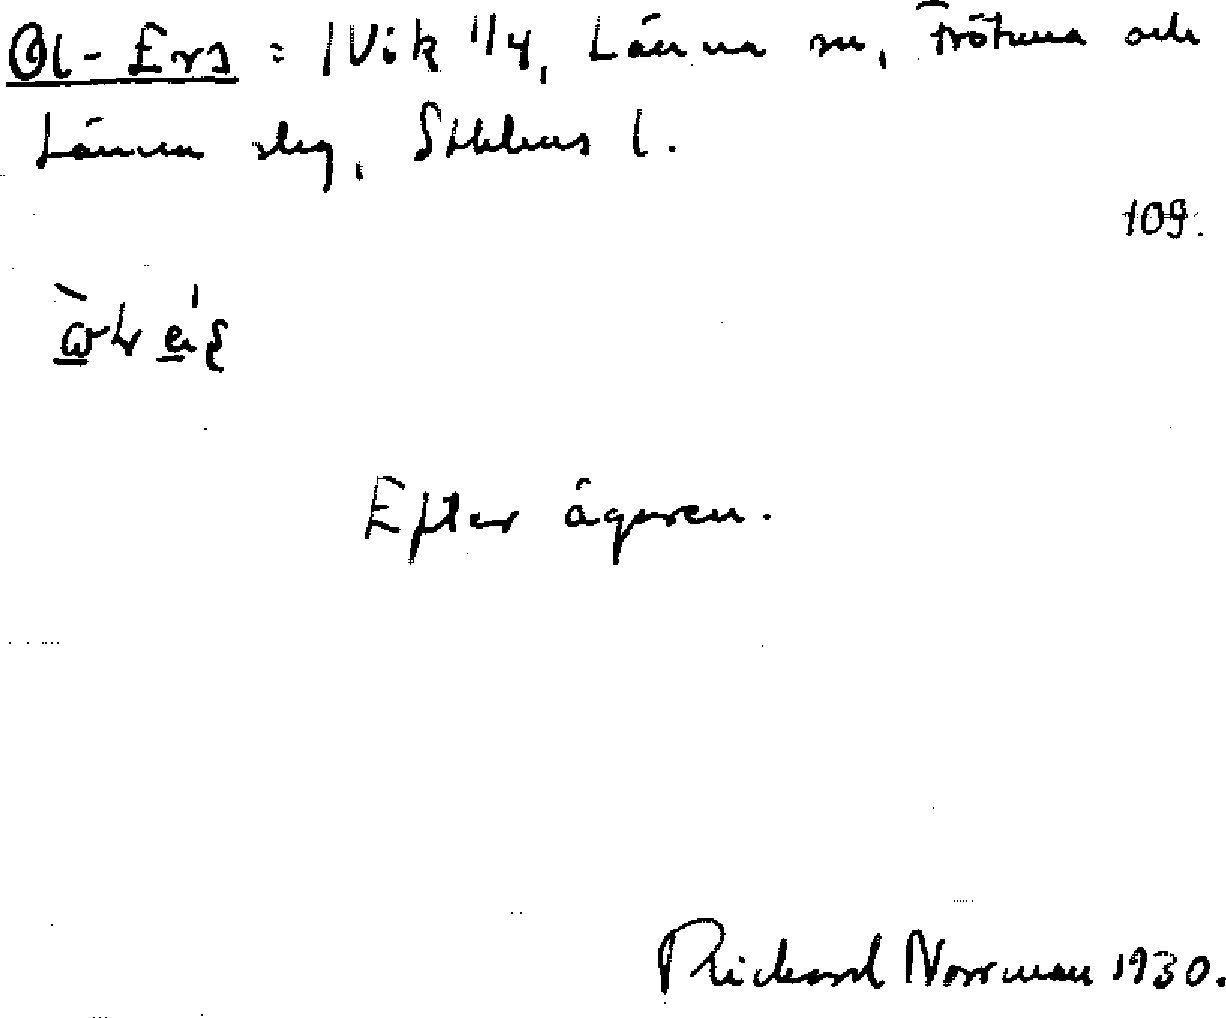 Ol-Ers = /Vik 1/4, Länna sn, Frötuna och
Länna slg, Sthlms l.
109.
Efter ägaren.
Rickard Norrman 1930.